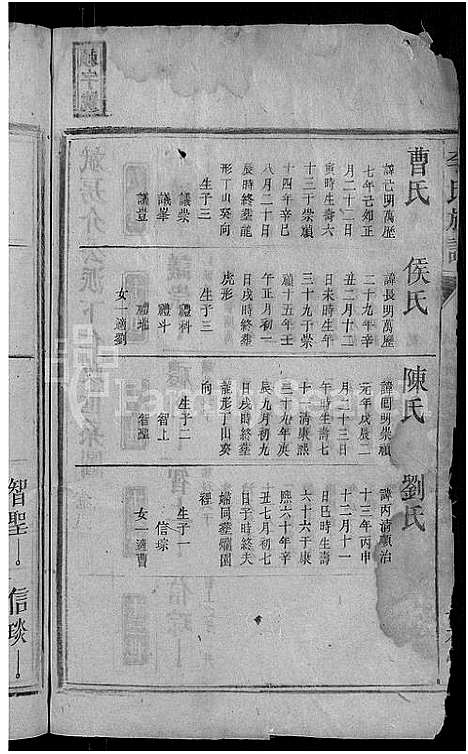 李氏族譜
曹氏
諱己明萬歷
七年己卯正
月二十二日
寅時生壽六
十三于崇禎
十四年辛巳
八月二十日
辰時終葬龍
形丁山癸向
生子三
議崇
議峯
議荳
侯氏
諱長明萬歷
二十九年辛
丑二月十二
日未時生壽
三十九于崇
禎十五年壬
午正月初一
日戌時終葬
虎形
生子三
禮科
禮斗
禮堆
女一適劉
陳氏
諱圓明崇禎
元年戊辰二
月二十三日
午時生壽七
十一清康熙
三十九年庚
辰九月初九
日戌時終葬
龍形丁山癸
向
生子二
智上
智聖
劉氏
諱丙清順治
十三年丙申
十二月十一
日巳時生壽
六十六于康
熙六十年辛
丑七月初七
日子時終夫
婦同葬
生子一
信琮
女一適曹
智聖
信琰